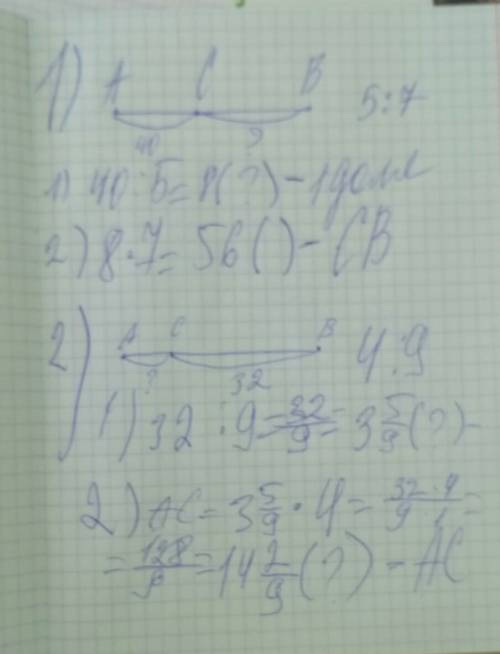 1) A C B 5:7
40 ?
1) 40:5=8(?)-1 доля
2) 8·7=56()-CB
2) A C B 4:9
? 32
1) 32:9=32/9=3 5/9(?)-
2) AC=3 5/9·4=32·4/9·1=
=128/9=14 2/9(?)-AC